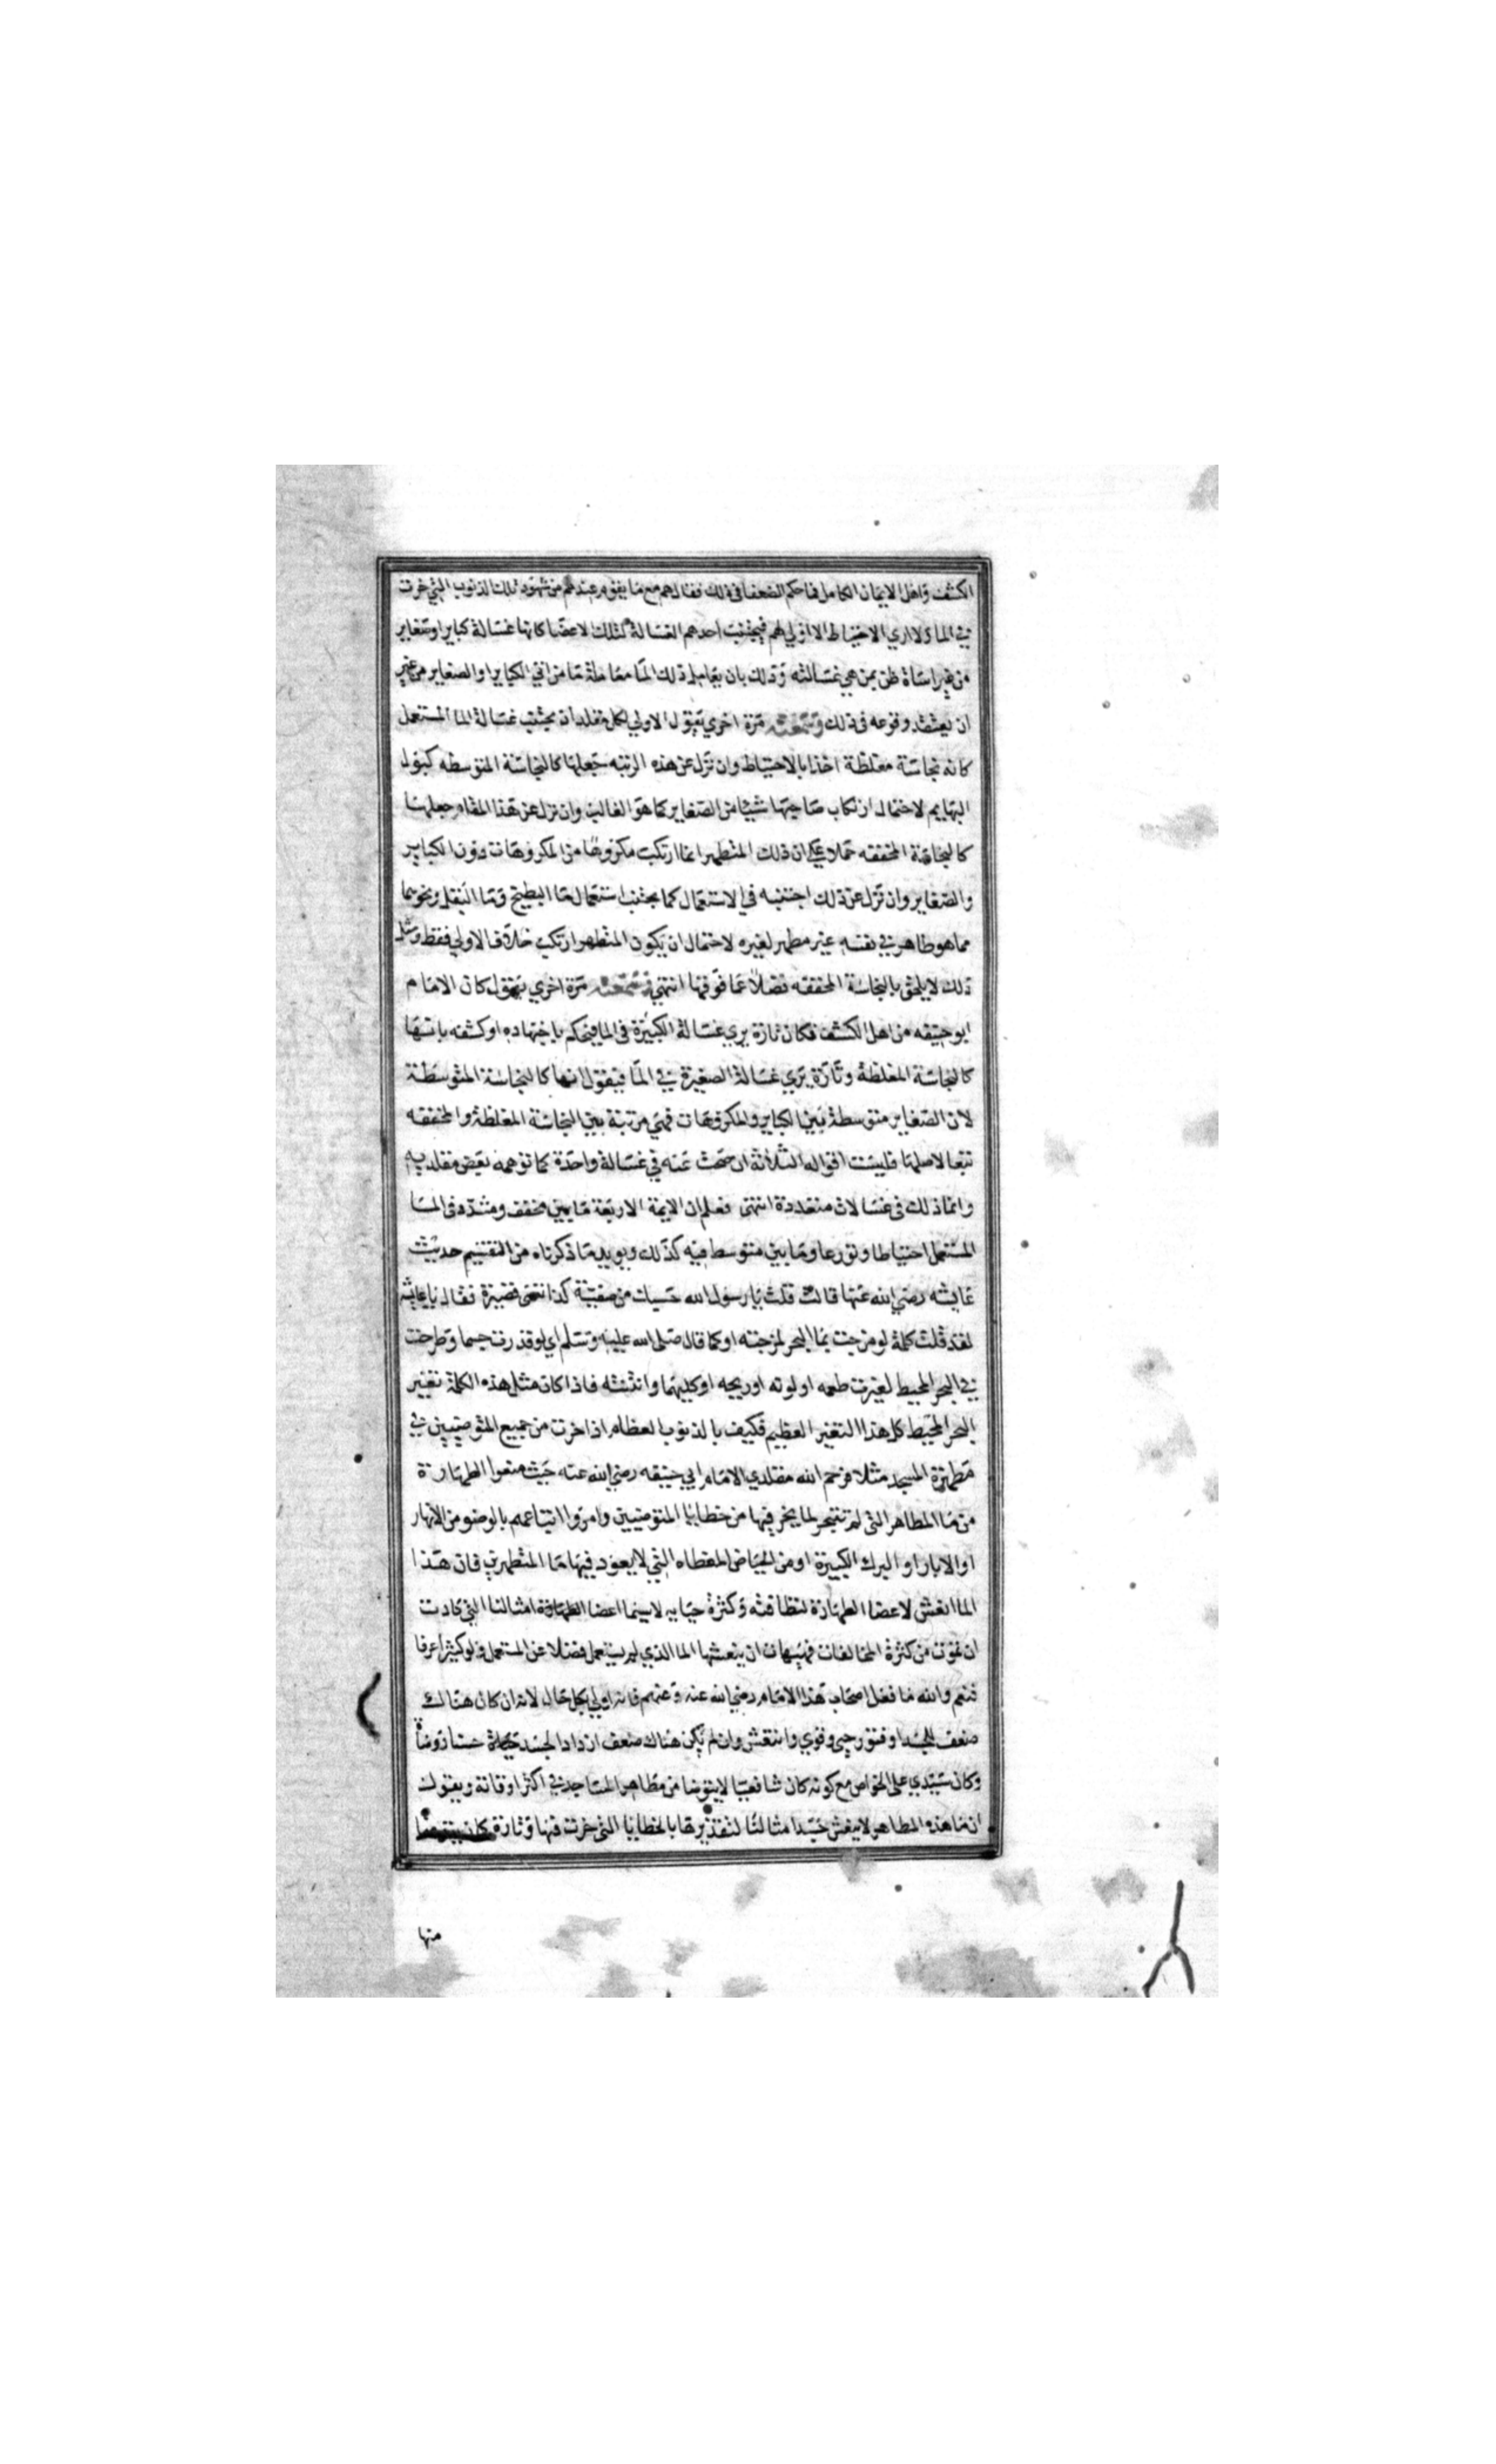 الكشف واهل الايمان الكامل فما حكم الضعفا في ذلك فقال هم مع ما يقوم عندهم من شهود تلك الذنوب التي خرت
في الما ولا اري الاحتياط الا اولي لهم فيجتنب احدهم الغسالة لتلك الاعضا كانها غسالة كباير او صغاير
من غير اساة ظن بمن هي غسالته وذلك بان يعامل ذلك الما معاملة ما مر في الكباير او الصغاير من غير
ان يعتقد وقوعه في ذلك وسمعته مرة اخري يقول الاولي لكل مقلد ان يجتنب غسالة الما المستعمل
كانه نجاسة مغلظة اخذا بالاحتياط وان نزل عن هذه الرتبه جعلها كالنجاسة المتوسطه كبول
البهايم لاحتمال ارتكاب صاحبها شيئا من الصغاير كما هو الغالب وان نزل عن هذا المقام جعلها
كالنجاسة المخففه حملا علي ان ذلك المتطهر انما ارتكب مكروها من المكروهات دون الكباير
والصغاير وان نزل عن ذلك اجتنبه في الاستعمال كما يجتنب استعمال ما البطيخ وما البقل ونحوهما
مما هو طاهر في نفسه غير مطهر لغيره لاحتمال ان يكون المتطهر ارتكب خلاف الاولي فقط ومثل
ذلك لا يلحق بالنجاسة المخففه فضلا عما فوقها انتهي وسمعته مرة اخري يقول كان الامام
ابو حنيفه من اهل الكشف فكان تارة يري غسالة الكبيرة في الما فيحكم باجتهاده او كشفه بانها
كالنجاسة المغلظة وتارة يري غسالة الصغيرة في الما فيقول انها كالنجاسة المتوسطة
لان الصغاير متوسطة بين الكباير والمكروهات فهي مرتبة بين النجاسة المغلظة والمخففه
تبعا لاصلها فليست اقواله الثلاثة ان صحت عنه في غسالة واحدة كما توهمه بعض مقلديه
وانما ذلك في غسالات متعددة انتهى فعلم ان الايمة الاربعة ما بين مخفف ومشدد في الما
المستعمل احتياطا وتورعا وما بين متوسط فيه كذلك ويويد ما ذكرناه من التقسيم حديث
عايشه رضي الله عنها قالت قلت يا رسول الله حسبك من صفية كذا تعني قصيرة فقال يا عايشه
لقد قلت كلمة لو مزجت بما البحر لمزجته او كما قال صلى الله عليه وسلم اي لو قدرت جسما وطرحت
في البحر المحيط لغيرت طعمه او لونه او ريحه او كليهما وانتنته فاذا كان مثل هذه الكلمة تغير
البحر المحيط كل هذا التغير العظيم فكيف بالذنوب العظام اذا خرت من جميع المتوضيين في
مطهرة المسجد مثلا فرحم الله مقلدي الامام ابي حنيفه رضي الله عنه حيث منعوا الطهارة
من ما المطاهر التي لم تستبحر لما يخر فيها من خطايا المتوضيين وامروا اتباعهم بالوضو من الانهار
او الابار او البرك الكبيرة او من الحياض المغطاه التي لا يعود فيها ما المتطهرين فان هذا
الما انعش لاعضا الطهارة لنظافته وكثرة حيايه لا سيما اعضا الطهارة امثالنا التي كادت
ان تموت من كثرة المخالفات فهيهات ان ينعشها الما الذي لم يستعمل فضلا عن المستعمل ولو كثيرا عرفا
فنعم والله ما فعل اصحاب هذا الامام رضي الله عنه وعنهم فانه اولي بكل حال لانه ان كان هناك
ضعف للجسد او فتور حيي وقوي وانتعش وان لم يكن هناك ضعف ازداد الجسد حياة حسا ومعنا
وكان سيدي علي الخواص مع كونه كان شافعيا لا يتوضا من مطاهر المساجد في اكثر اوقاته ويقول
ان ما هذه المطاهر لا ينعش جسد امثالنا لتقذيرها بالخطايا التي خرت فيها وتارة كان يتوضا
منها